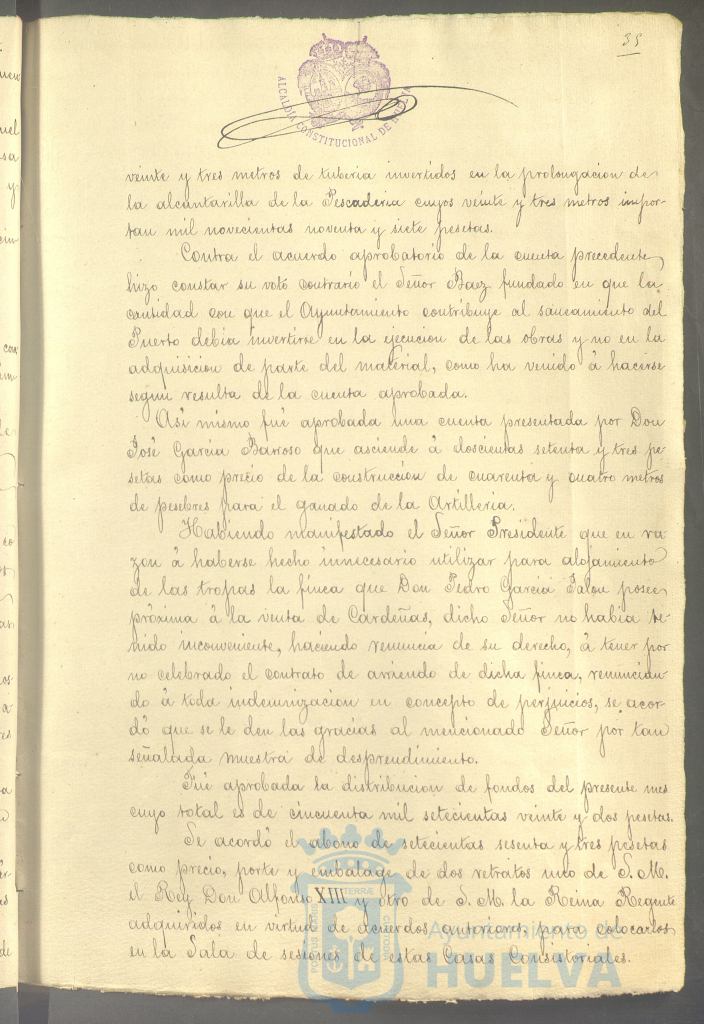 35
ALCALDÍA CONSTITUCIONAL DE HUELVA
veinte y tres metros de tuberia invertidos en la prolongacion de
la alcantarilla de la Pescaderia cuyos veinte y tres metros impor-
tan mil novecientas noventa y siete pesetas.
Contra el acuerdo aprobatorio de la cuenta precedente,
hizo constar su voto contrario el Señor Baez fundado en que la
cantidad con que el Ayuntamiento contribuye al saneamiento del
Puerto debia invertirse en la ejecucion de las obras y no en la
adquisicion de parte del material, como ha venido á hacerse
segun resulta de la cuenta aprobada.
Asi mismo fué aprobada una cuenta presentada por Don
José Garcia Barroso que asciende á doscientas setenta y tres pe-
setas como precio de la construccion de cuarenta y cuatro metros
de pesebres para el ganado de la Artilleria.
Habiendo manifestado el Señor Presidente que en ra-
zon á haberse hecho innecesario utilizar para alojamiento
de las tropas la finca que Don Pedro Garcia Jalon posee
próxima á la venta de Cardeñas, dicho Señor no habia te-
nido inconveniente, haciendo renuncia de su derecho, á tener por
no celebrado el contrato de arriendo de dicha finca, renuncian-
do á toda indemnizacion en concepto de perjuicios, se acor-
dó que se le den las gracias al mencionado Señor por tan
señalada muestra de desprendimiento.
Fué aprobada la distribucion de fondos del presente mes
cuyo total es de cincuenta mil setecientas veinte y dos pesetas.
Se acordó el abono de setecientas sesenta y tres pesetas
como precio, porte y embalage de dos retratos uno de S. M.
el Rey Don Alfonso XIII y otro de S. M. la Reina Regente
adquiridos en virtud de acuerdos anteriores, para colocarlos
en la Sala de sesiones de estas Casas Consistoriales.
PORTUS MARIS ET TERRÆ CUSTODIA
Ayuntamiento de
HUELVA